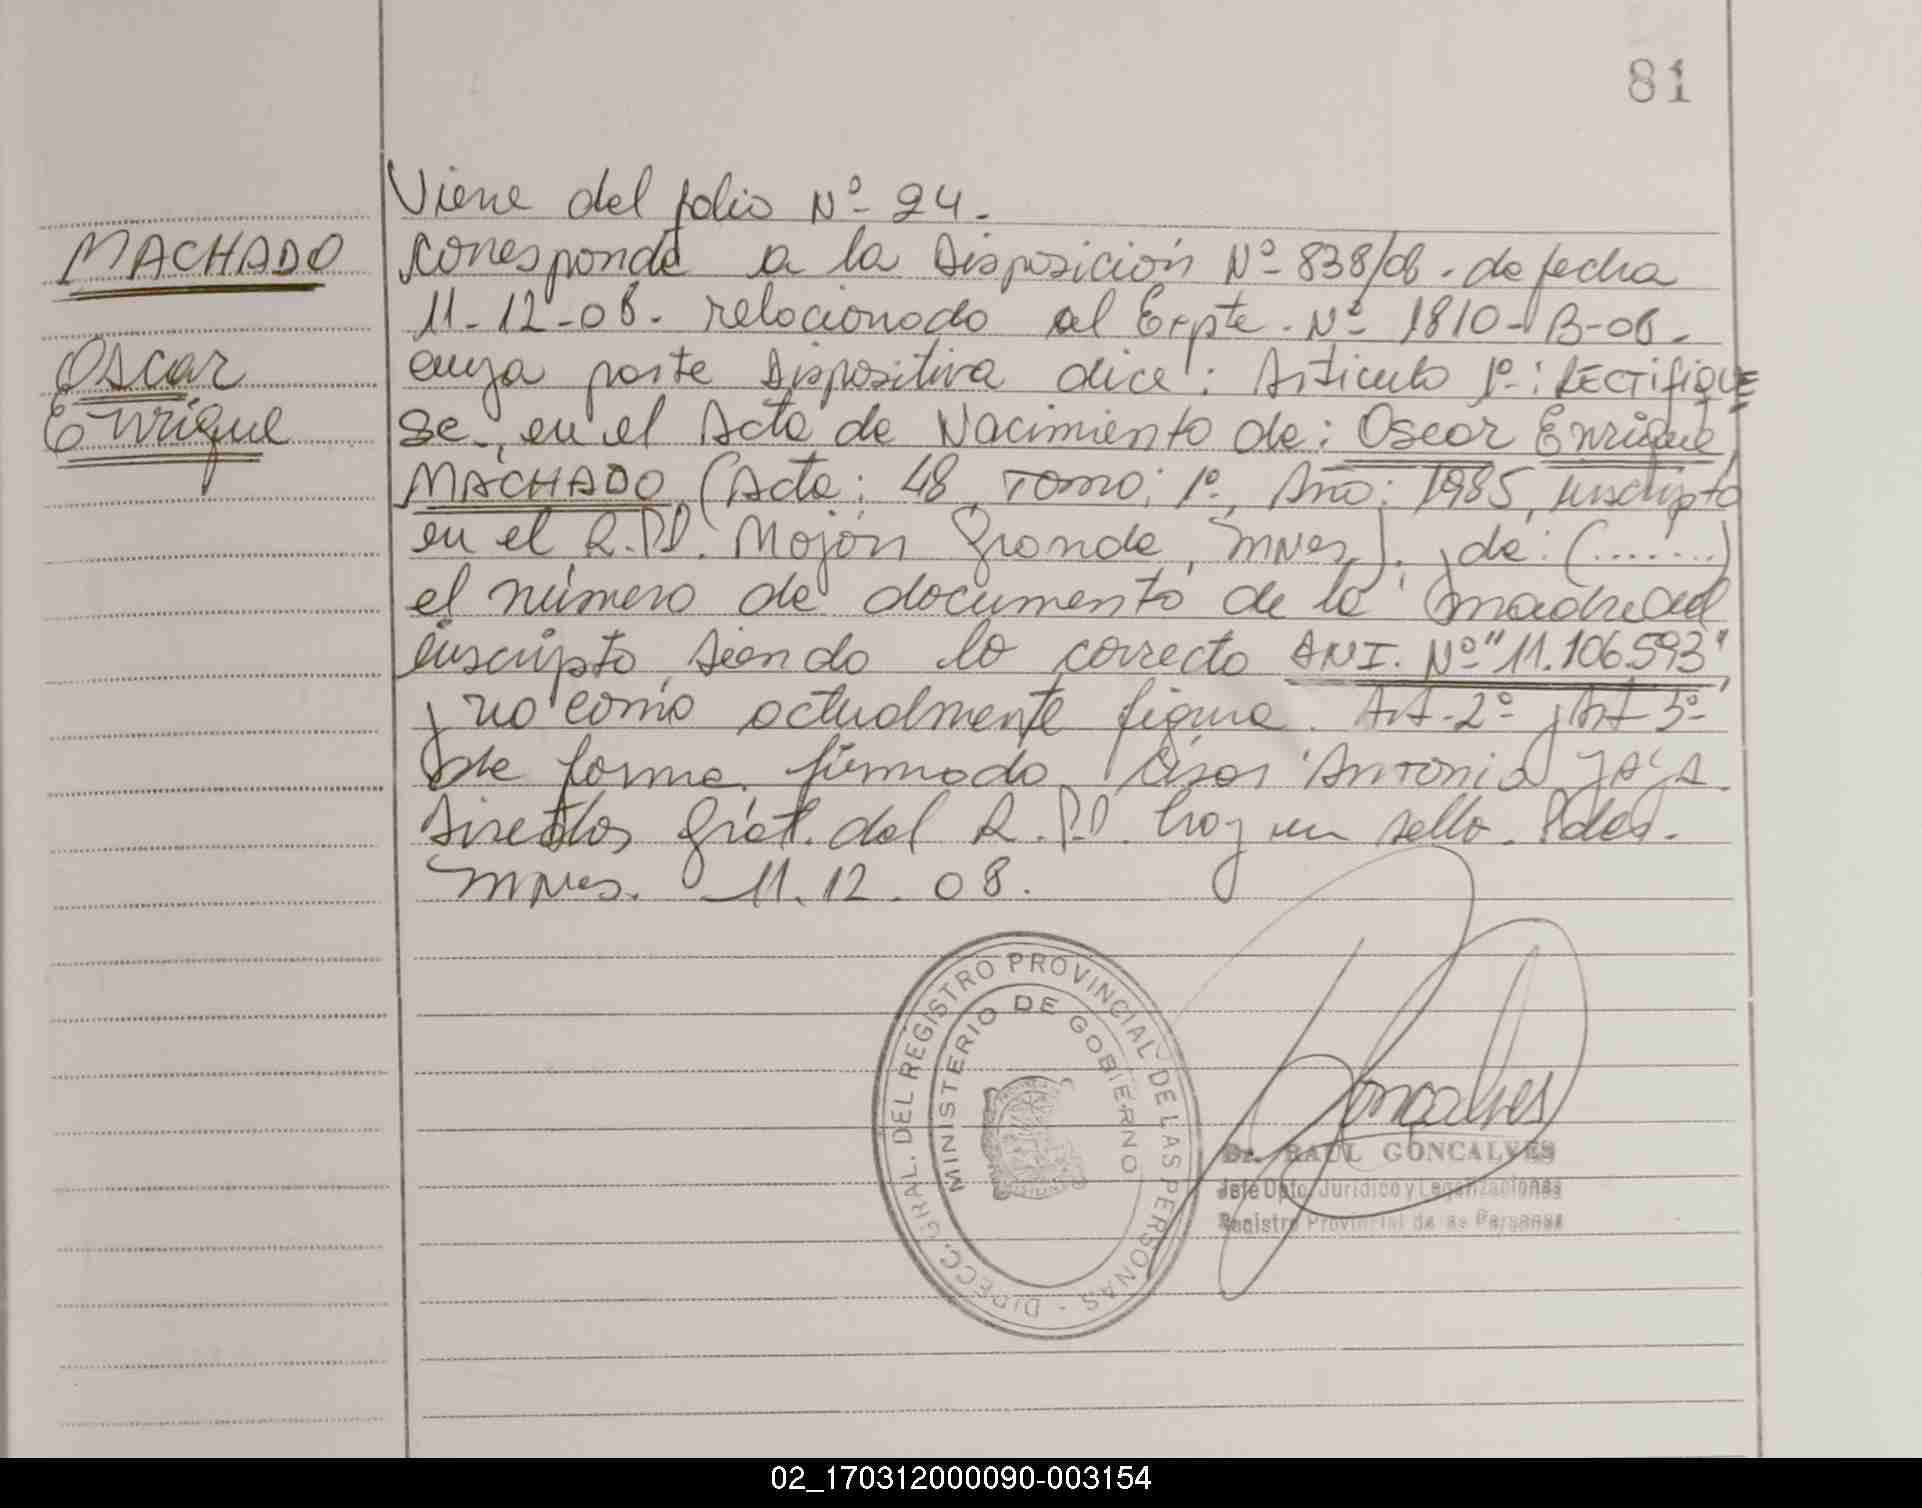 81
Viene del folio Nº 24.
MACHADO
corresponde a la Disposición Nº 838/08. de fecha
11-12-08. relacionado al Expte. Nº 1810-B-08.
Oscar
cuya parte Dispositiva dice: Artículo 1º: RECTIFIQUE
Enrique
se, en el Acta de Nacimiento de: Oscar Enrique
MACHADO, (Acta: 48, Tomo: 1º, Año: 1985, inscripto
en el R.P.P. Mojón Grande, Mnes), de: (.......)
el número de documento de la madre del
inscripto, siendo lo correcto DNI. Nº "11.106.593"
y no como actualmente figura. Art-2º y Art-3º
de forma. firmado Antonio
Gral. del R.P.P. hay un sello. Pdas.
Mnes. 11.12.08.
DIRECC. GRAL. DEL REGISTRO PROVINCIAL DE LAS PERSONAS -
MINISTERIO DE GOBIERNO
Goncalves
Dr. RAUL GONCALVES
Jefe Dpto. Jurídico y Legalizaciones
Registro Provincial de as Personas
02_170312000090-003154